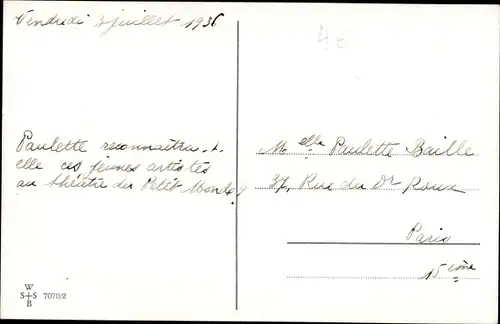 Vendredi 3 juillet 1936
4€
Paulette reconnaîtra-t-
elle ces jeunes artistes
au théâtre du Petit Monde ?
Melle Paulette Baille
37, Rue du Dr Roux
Paris
15ème
W
S+S
B
7070/2